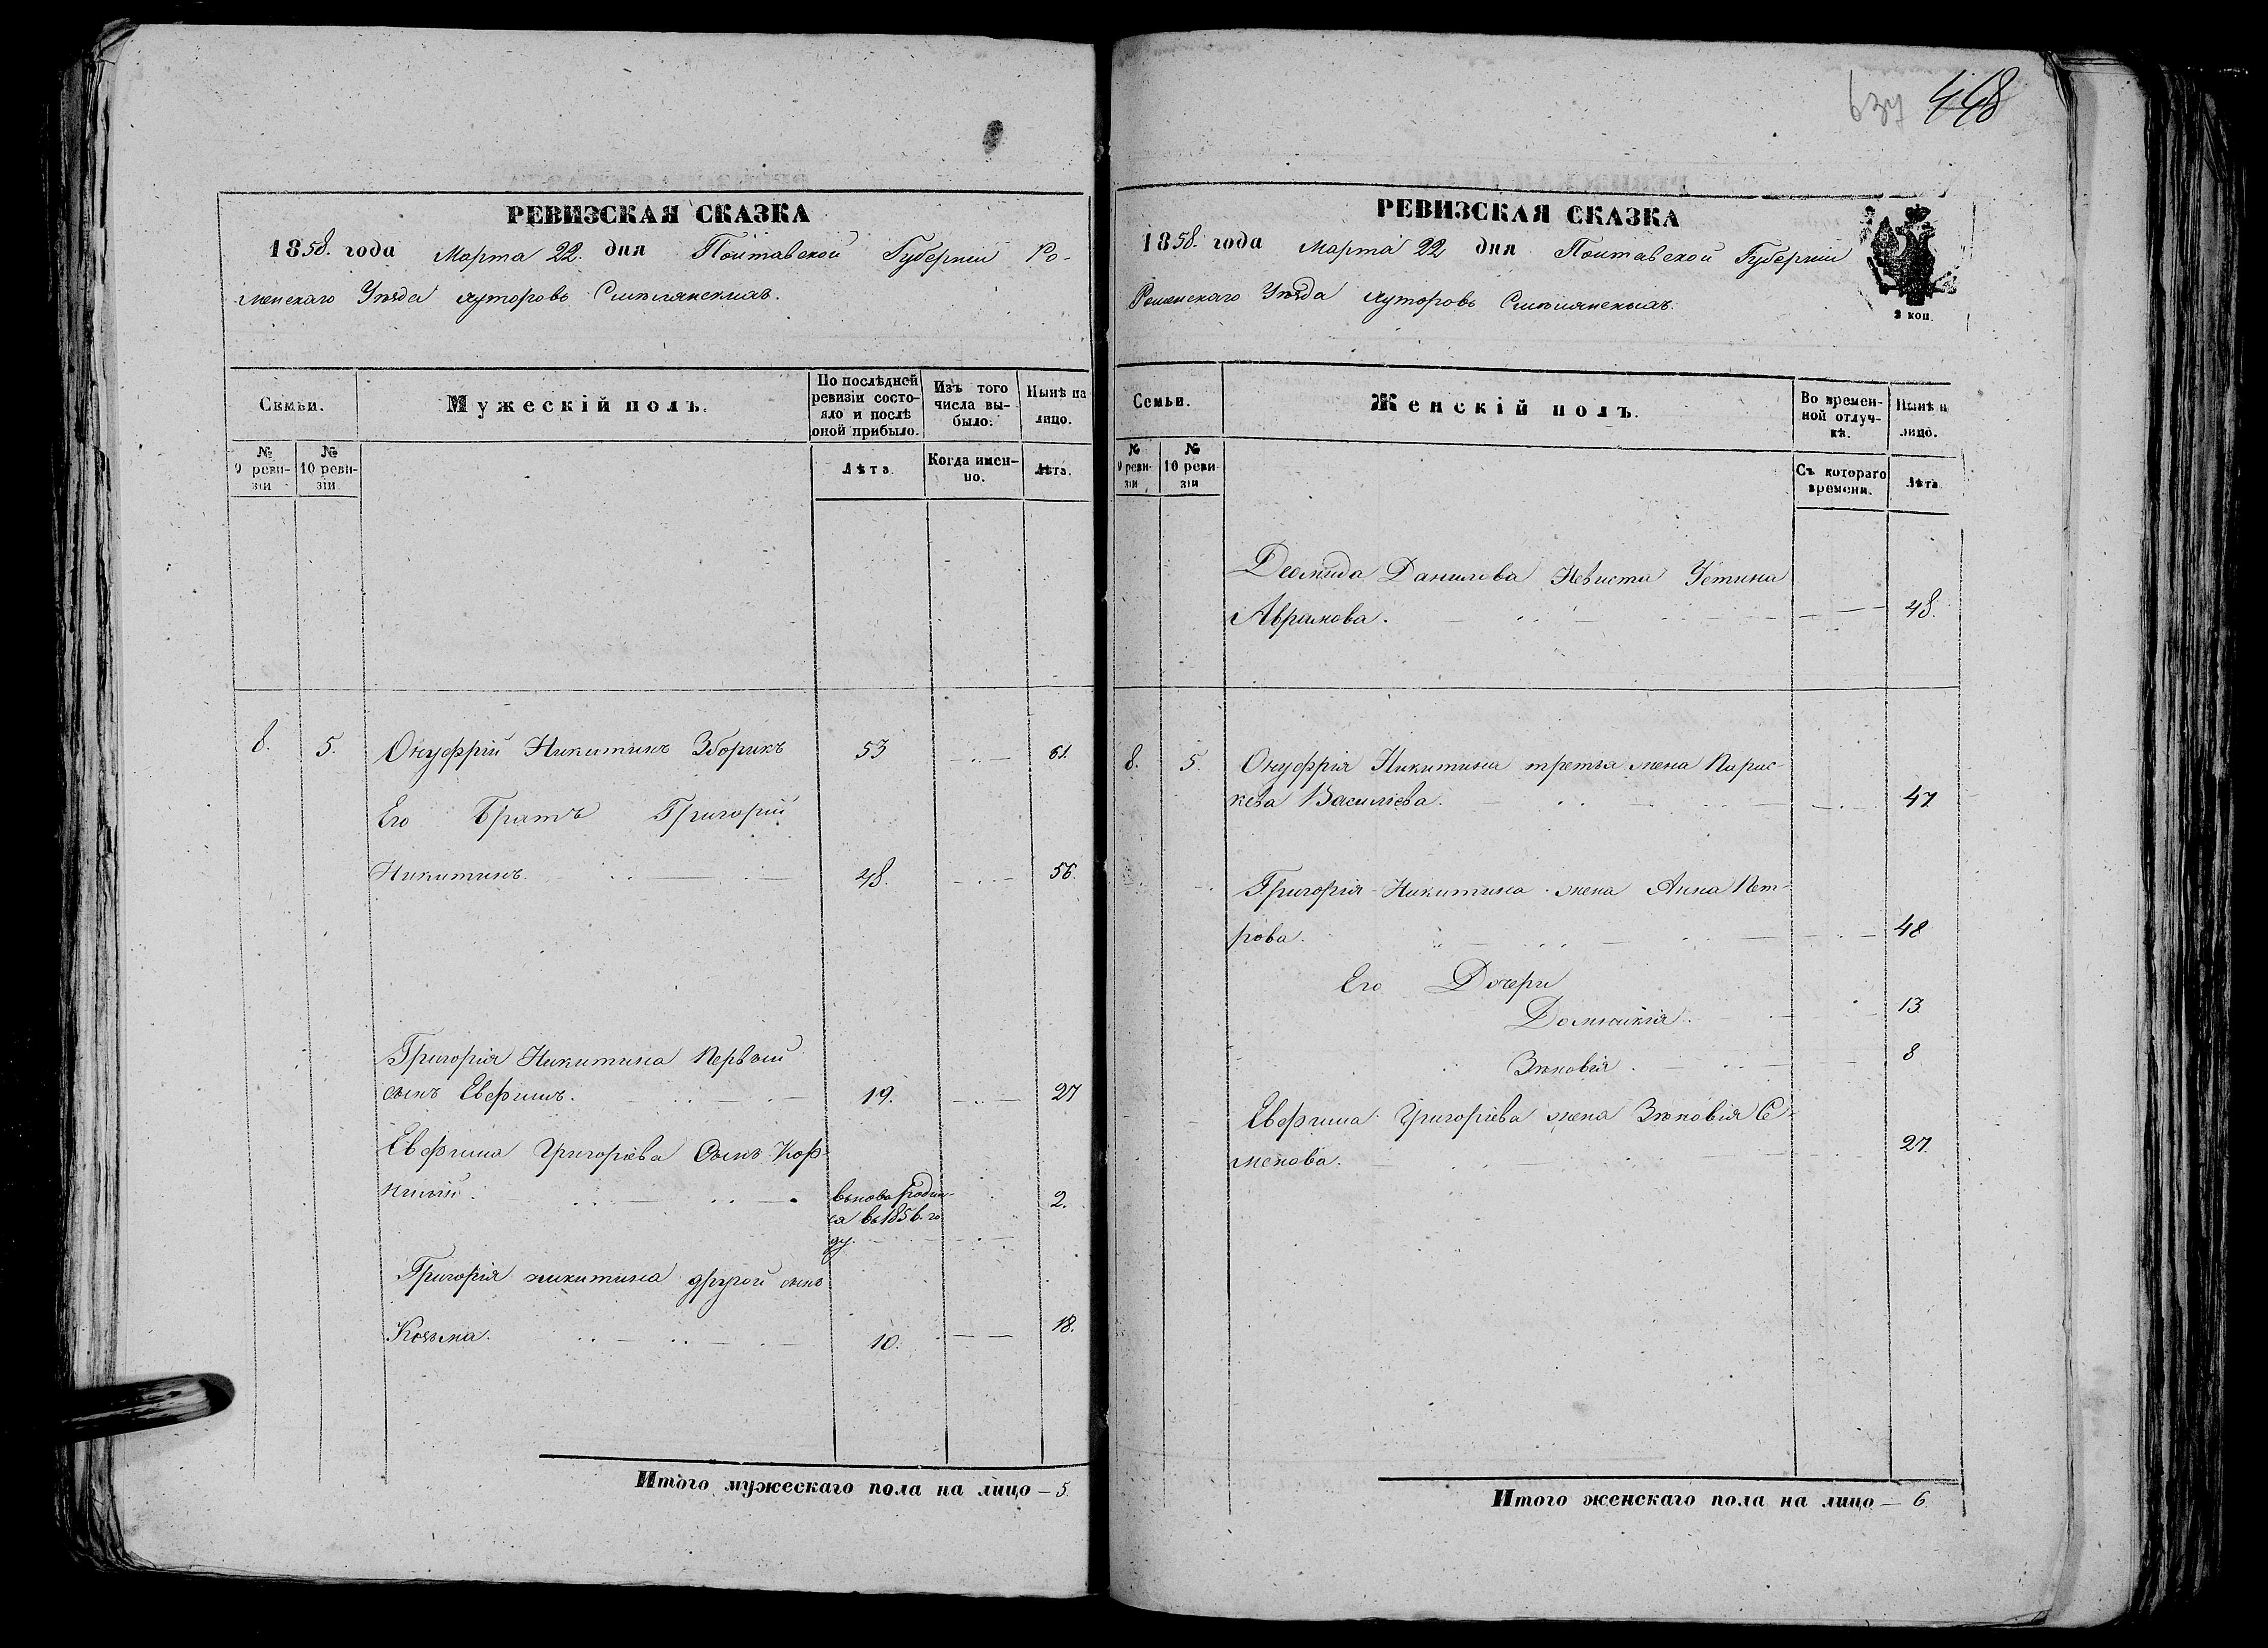 637 448
РЕВИЗСКАЯ СКАЗКА
1858. года Марта 22. дня Полтавской Губерніи Ро-
менскаго Уѣзда хуторовъ Смѣлянскихъ.
Семьи.
Мужескій полъ.
По послѣдней ревизіи состо-
яло и послѣ
оной прибыло.
Изъ того
числа вы-
было.
Нынѣ на
лицо.
№
9 реви-
зіи
№
10 реви-
зіи
Лѣта.
Когда имен-
но.
Лѣта.
8. 5. Онуфрій Никитинъ Зборикъ 53 61.
Его Братъ Григорій
Никитинъ 48. 56.
Григорія Никитина Первый
сынъ Евфимъ. 19. 27
Евфима Григоріева Сынъ Кор-
нилій. вново родил-
ся въ 1856. го-
ду. 2.
Григорія Никитина другой сынъ
Козьма. 10. 18.
Итого мужескаго пола на лицо — 5.
РЕВИЗСКАЯ СКАЗКА
1858. года Марта 22 дня Полтавской Губерніи
Роменскаго Уѣзда хуторовъ Смѣлянскихъ.
2 коп.
Семьи.
Женскій полъ.
Во времен-
ной отлуч-
кѣ.
Нынѣ н
лицо.
№
9 реви-
зіи
№
10 реви-
зіи
Съ котораго
времени.
Лѣта
Данилова Невѣста Устина
Аврамова. 48.
8. 5. Онуфрія Никитина третья жена Парас-
кева Василіева. 47
Григорія Никитина жена Анна Пет-
рова. 48
Его Дочери
Домникія. 13
Зѣновія. 8
Евфима Григоріева жена Зѣновія Се-
менова. 27.
Итого женскаго пола на лицо — 6.